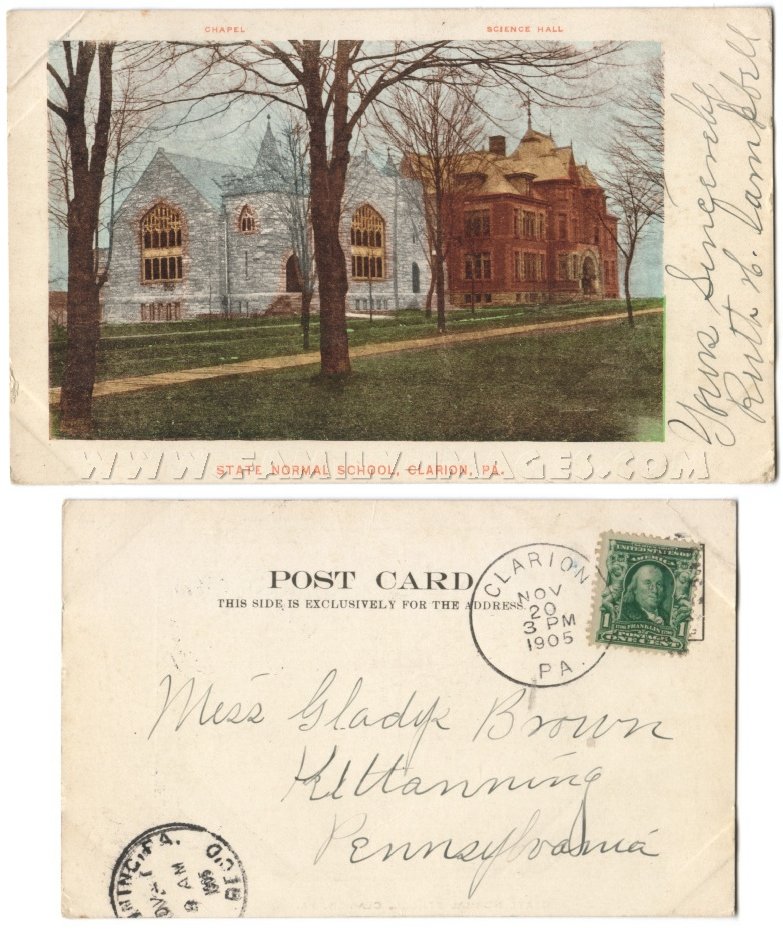 CHAPEL
SCIENCE HALL
Yours Sincerely
Ruth H. Campbell
WWW.FAMILY-IMAGES.COM
STATE NORMAL SCHOOL, CLARION, PA.
POST CARD
THIS SIDE IS EXCLUSIVELY FOR THE ADDRESS.
CLARION
NOV
20
3 PM
1905
PA.
UNITED STATES OF
AMERICA
FRANKLIN
1 POSTAGE 1
ONE CENT
Miss Gladys Brown
Kittanning
Pennsylvania
NING, PA.
REC'D
AM
1905